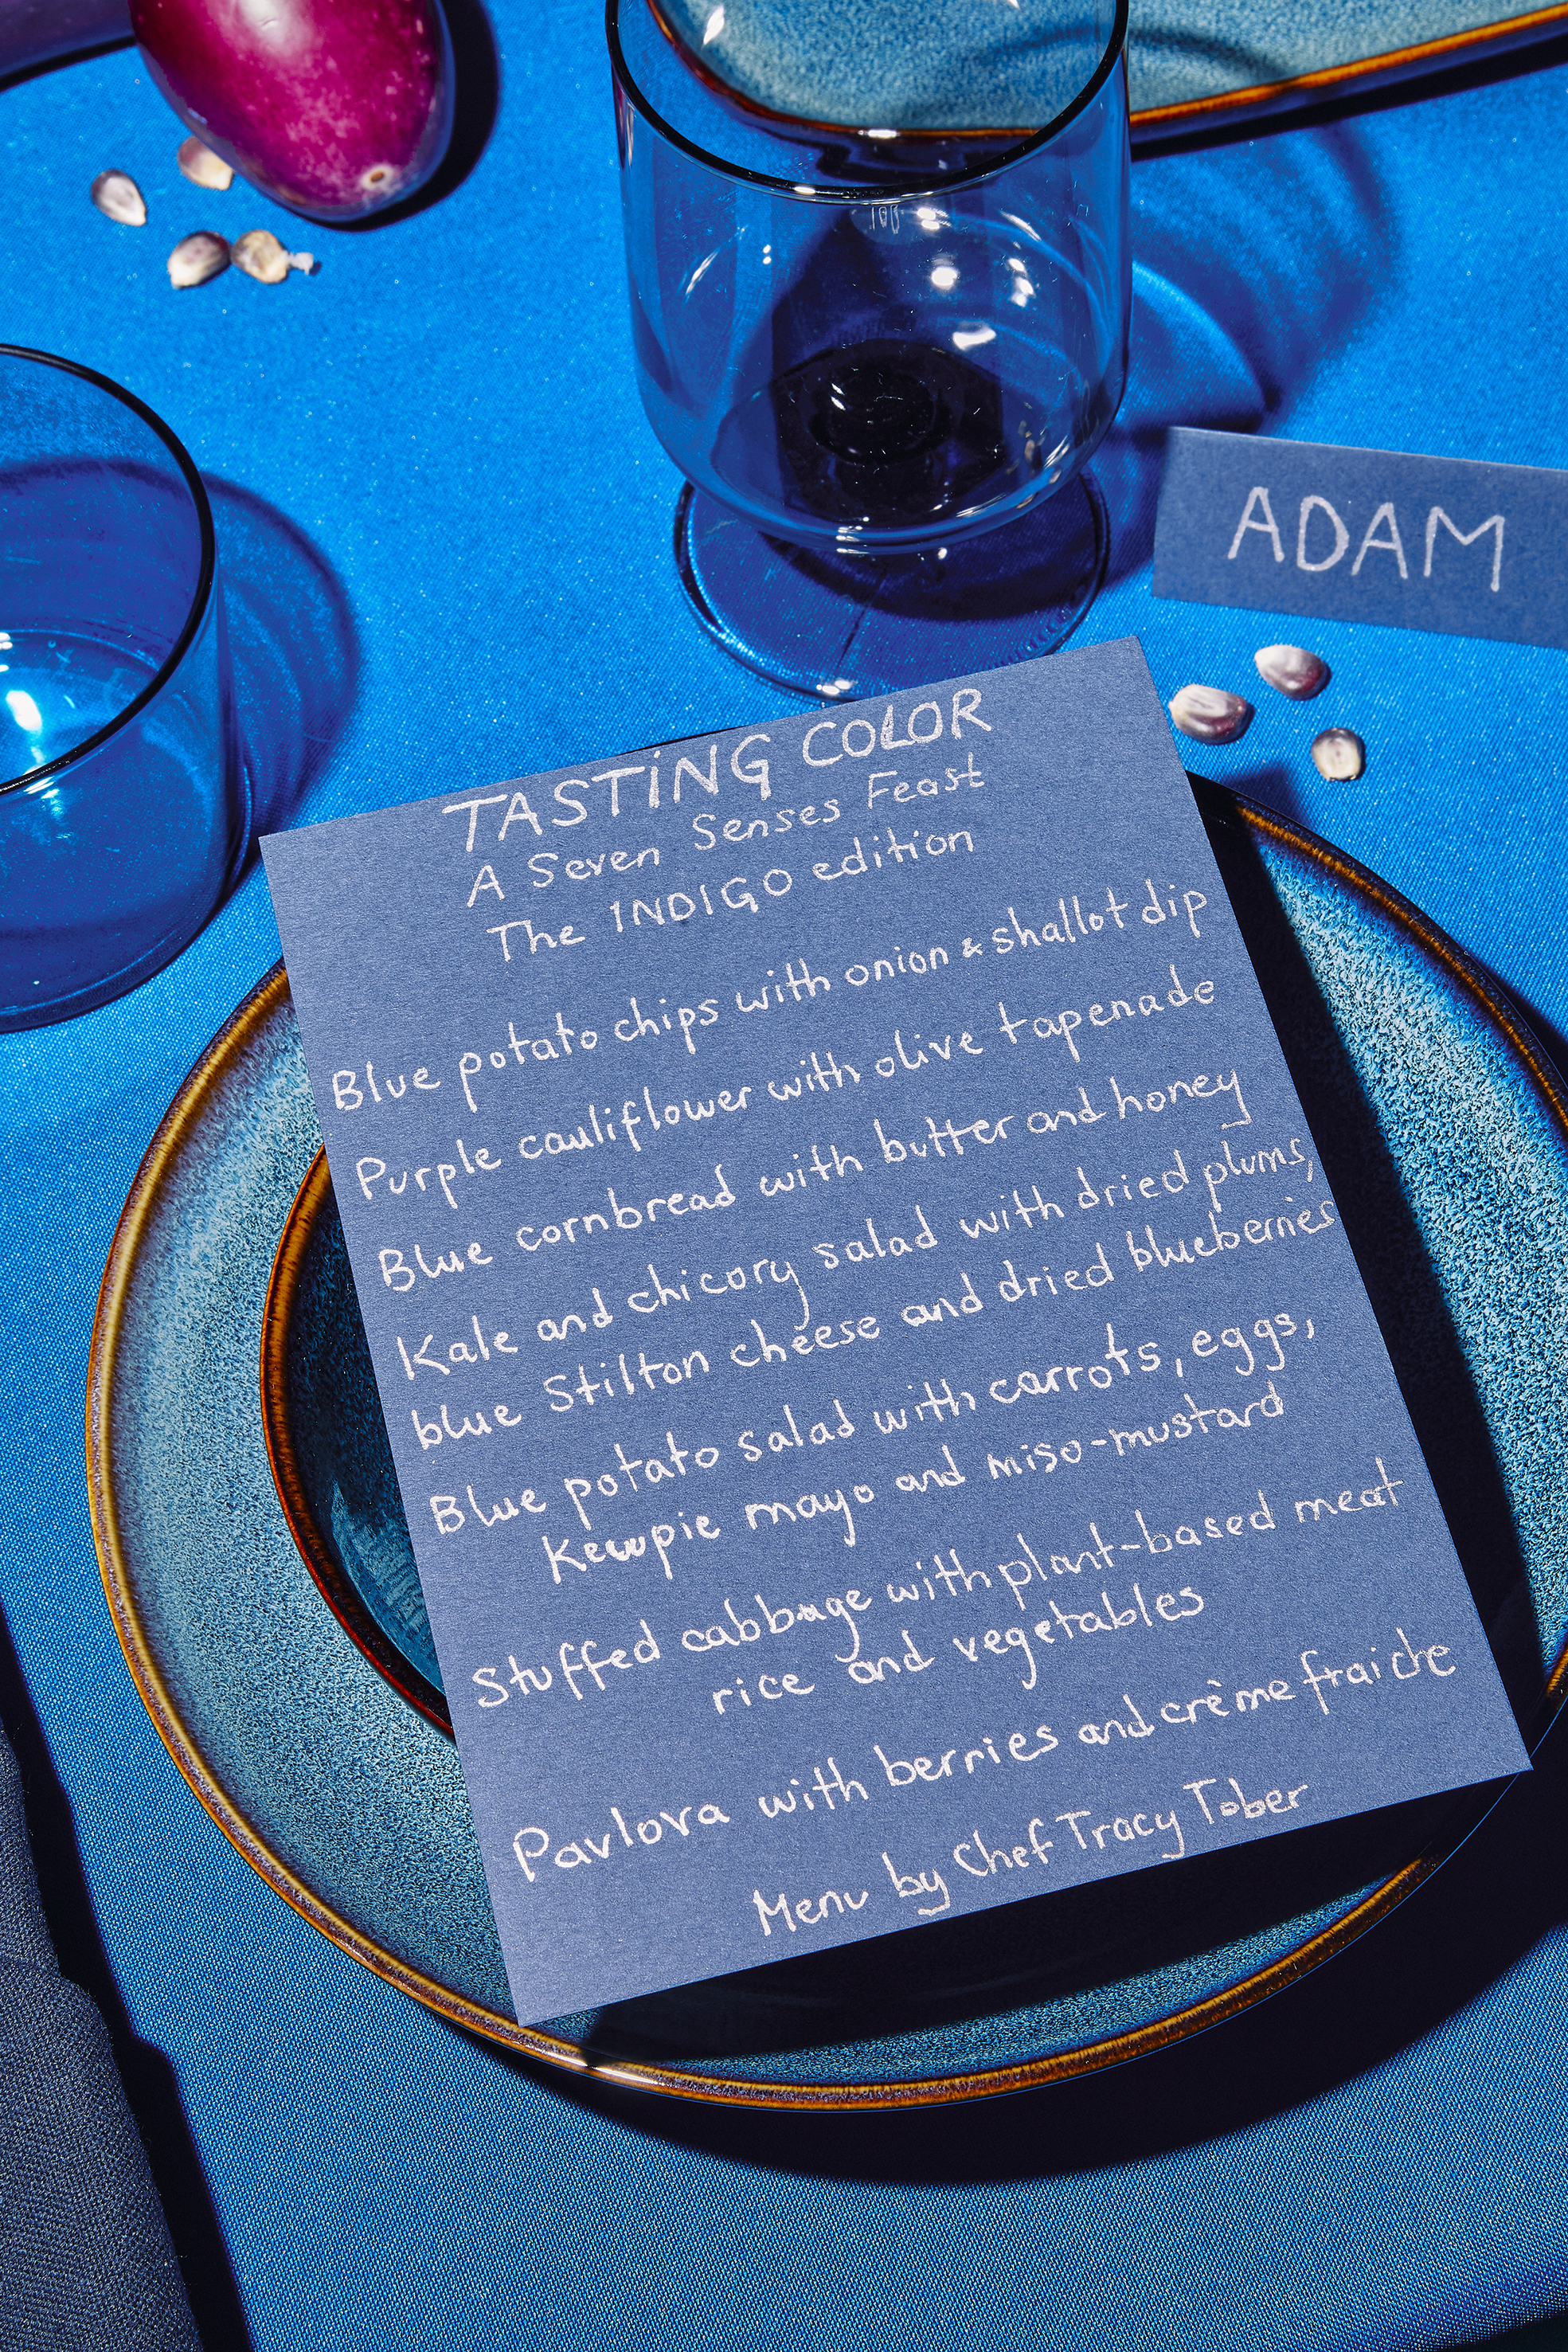 ADAM
TASTING COLOR
A Seven Senses Feast
The INDIGO edition
Blue potato chips with onion & shallot dip
Purple cauliflower with olive tapenade
Blue cornbread with butter and honey
Kale and chicory salad with dried plums,
blue Stilton cheese and dried blueberries
Blue potato salad with carrots, eggs,
Kewpie mayo and miso-mustard
Stuffed cabbage with plant-based meat
rice and vegetables
Pavlova with berries and crème fraiche
Menu by Chef Tracy Tober